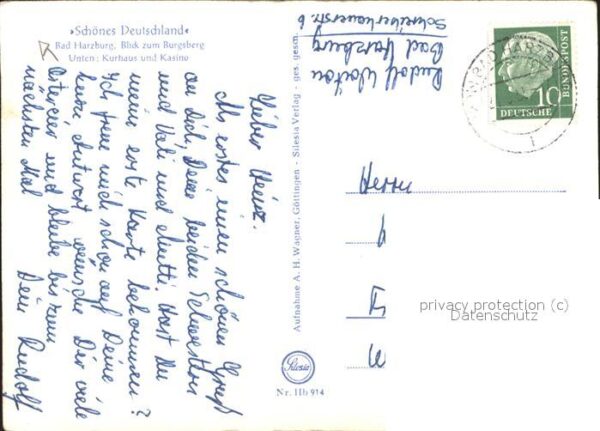 »Schönes Deutschland«
Bad Harzburg, Blick zum Burgberg
Unten: Kurhaus und Kasino
Lieber Heinz.
Als erstes einen schönen Gruß
an Dich, Deine beiden Schwestern
und Vati und Mutti. Hast Du
meine erste Karte bekommen?
Ich freue mich schon auf Deine
Antwort, wünsche Dir viele
Ostereier und bleibe bis zum
nächsten Mal
Dein Rudolf
Aufnahme A. H. Wagner, Göttingen - Silesia Verlag - ges. gesch.
Silesia
Nr. Hb 914
Rudolf
Bad Harzburg
BAD HARZB
10
DEUTSCHE
BUNDESPOST
Herrn
privacy protection (c)
Datenschutz